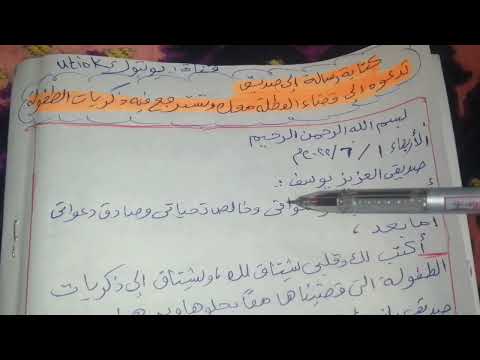 قناة يوتيوب utiok
كتابة رسالة إلى صديق
تدعوه إلى قضاء العطلة معك وتسترجع فيه ذكريات الطفولة
بسم الله الرحمن الرحيم
الأربعاء 1 / 6 / 2022م
صديقي العزيز يوسف :
وخالص تحياتي وصادق دعواتي
أما بعد ،
أكتب لك وقلبي يشتاق لك ، ويشتاق إلى ذكريات
الطفولة التي قضيناها معًا بحلوها
صديقي